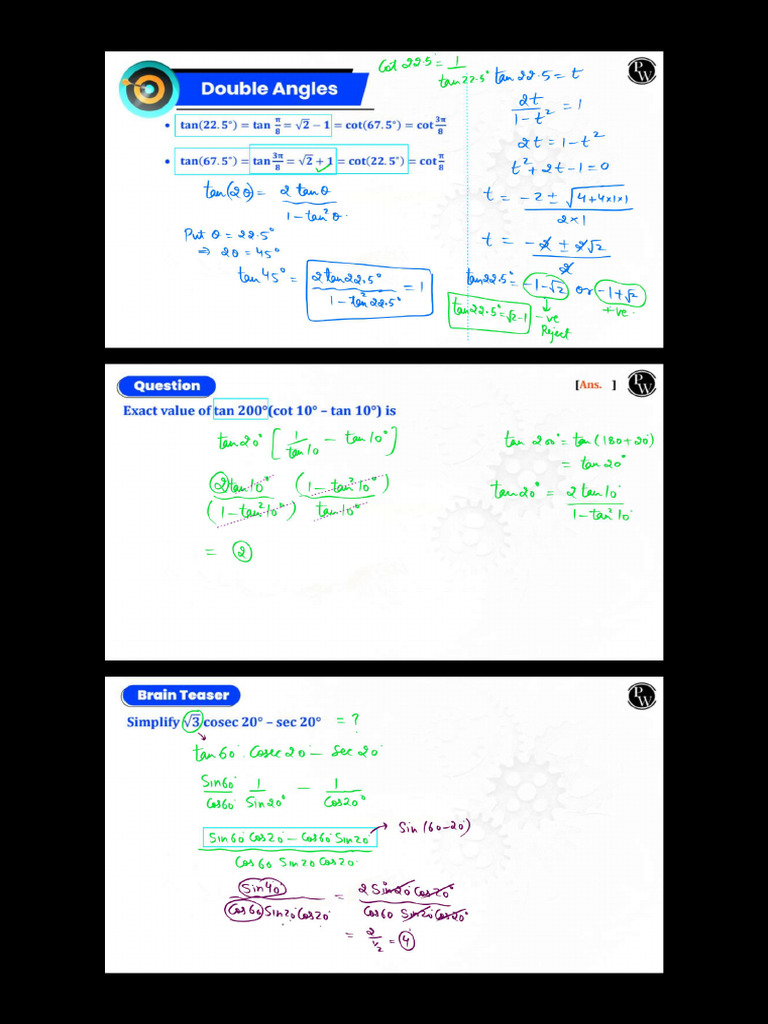 Double Angles
cot 22.5 = 1/tan 22.5°
PW
• tan(22.5°) = tan π/8 = √2 − 1 = cot(67.5°) = cot 3π/8
• tan(67.5°) = tan 3π/8 = √2 + 1 = cot(22.5°) = cot π/8
tan(2θ) = 2 tanθ / 1 − tan²θ
Put θ = 22.5°
⇒ 2θ = 45°
tan 45° = 2 tan 22.5° / 1 − tan² 22.5° = 1
tan 22.5 = t
2t / 1 − t² = 1
2t = 1 − t²
t² + 2t − 1 = 0
t = −2 ± √4 + 4×1×1 / 2×1
t = −2 ± 2√2 / 2
tan 22.5° = −1 − √2 or −1 + √2
tan 22.5° = √2 − 1
−ve
+ve
Reject
Question
[Ans. ]
PW
Exact value of tan 200°(cot 10° – tan 10°) is
tan 20° [ 1/tan 10 − tan 10° ]
2 tan 10° (1 − tan² 10°)
(1 − tan² 10°) tan 10°
= 2
tan 200° = tan (180 + 20)
= tan 20°
tan 20° = 2 tan 10° / 1 − tan² 10°
Brain Teaser
PW
Simplify √3 cosec 20° – sec 20° = ?
tan 60° . Cosec 20 − Sec 20°
Sin 60°/Cos 60° 1/Sin 20° − 1/Cos 20°
Sin 60° Cos 20° − Cos 60° Sin 20° → Sin (60 − 20)
Cos 60 Sin 20 Cos 20°
Sin 40° / Cos 60 Sin 20 Cos 20 = 2 Sin 20° Cos 20° / Cos 60 Sin 20° Cos 20°
= 2 / 1/2 = 4